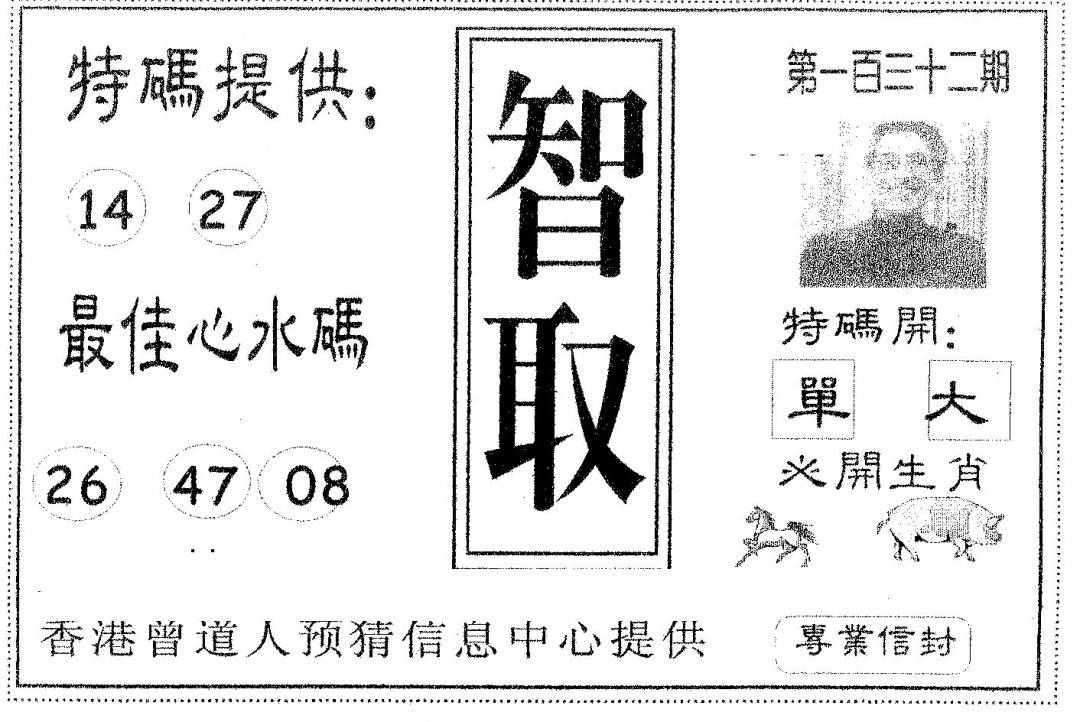 特碼提供：
14 27
最佳心水碼
26 47 08
智取
第一百三十二期
特碼開：
單 大
必開生肖
香港曾道人预猜信息中心提供
專業信封